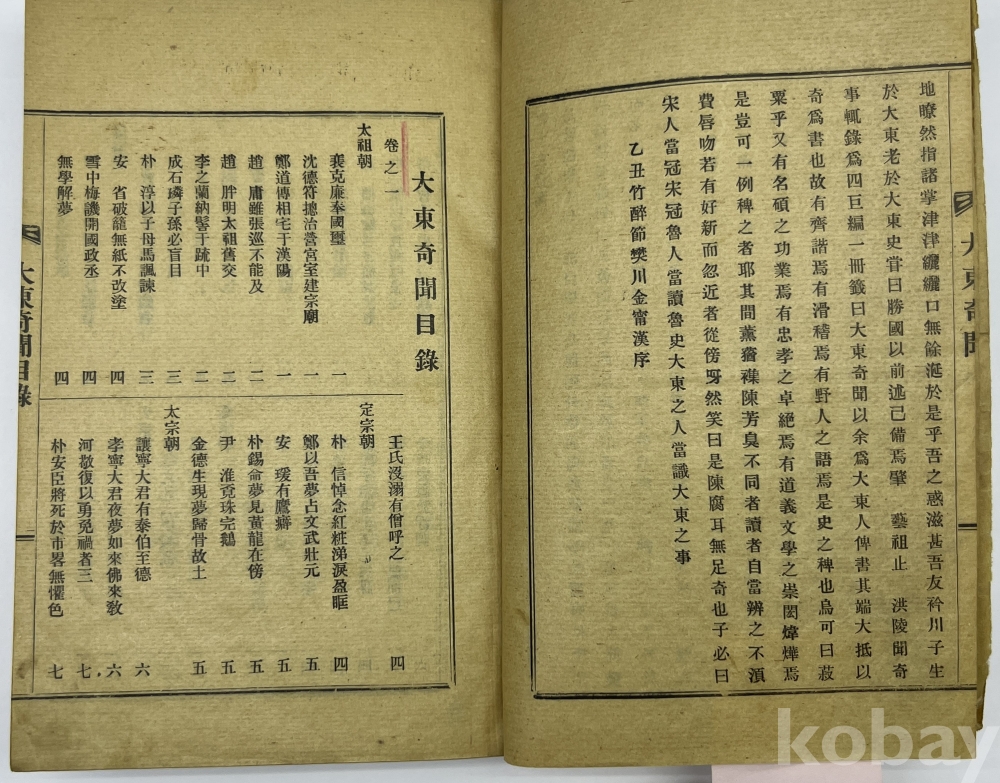 地瞭然指諸掌津津纚纚口無餘涎於是乎吾之惑滋甚吾友衿川子生
於大東老於大東史甞曰勝國以前述已備焉肇 藝祖止 洪陵聞奇
事輒錄爲四巨編一冊籤曰大東奇聞以余爲大東人俾書其端大抵以
奇爲書也故有齊諧焉有滑稽焉有野人之語焉是史之稗也烏可曰菽
粟乎又有名碩之功業焉有忠孝之卓絕焉有道義文學之崇閎煒燁焉
是豈可一例稗之者耶其間薰蕕襍陳芳臭不同者讀者自當辨之不湏
費唇吻若有好新而忽近者從傍呀然笑曰是陳腐耳無足奇也子必曰
宋人當冠宋冠魯人當讀魯史大東之人當識大東之事
乙丑竹醉節樊川金甯漢序
大東奇聞
大東奇聞目錄
卷之一
太祖朝
裵克廉奉國璽 一
沈德符摠治營宮室建宗廟 一
鄭道傳相宅于漢陽 一
趙 庸雖張巡不能及 二
趙 胖明太祖舊交 二
李之蘭納髻于疏中 二
成石璘子孫必盲目 三
朴 淳以子母馬諷諫 三
安 省破籠無紙不改塗 四
雪中梅譏開國政丞 四
無學解夢 四
王氏沒溺有僧呼之 四
定宗朝
朴 信悼念紅粧涕淚盈眶 四
鄭以吾夢占文武壯元 五
安 瑗有鷹癖 五
朴錫命夢見黃龍在傍 五
尹 淮覓珠完鵝 五
金德生現夢歸骨故土 五
太宗朝
讓寧大君有泰伯至德 六
孝寧大君夜夢如來佛來敎 六
河敬復以勇免禍者三 七
朴安臣將死於市畧無懼色 七
大東奇聞目錄
一
kobay